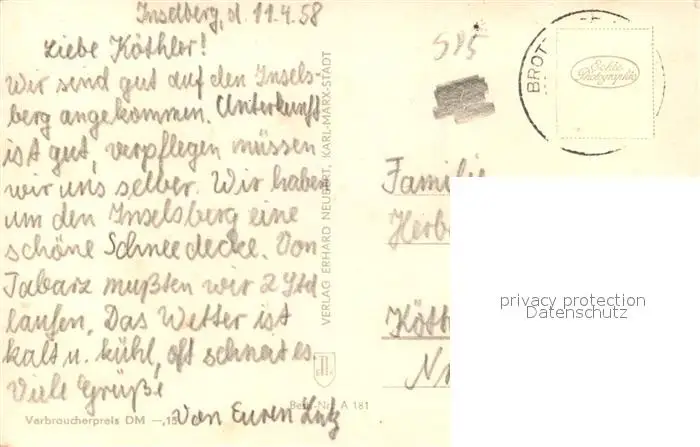 Inselberg, d. 11.4.58
Liebe Köthler!
Wir sind gut auf den Insels-
berg angekommen. Unterkunft
ist gut, verpflegen müssen
wir uns selber. Wir haben
um den Inselsberg eine
schöne Schneedecke. Von
Tabarz mußten wir 2 Std
laufen. Das Wetter ist
kalt u. kühl, oft schneit es.
Viele Grüße
Von Euren Lutz
Verbraucherpreis DM —,15
Best.-Nr. A 181
VERLAG ERHARD NEUBERT, KARL-MARX-STADT
585
BROT
Echte
Photographie
Familie
Herb
Köth
N
privacy protection
Datenschutz